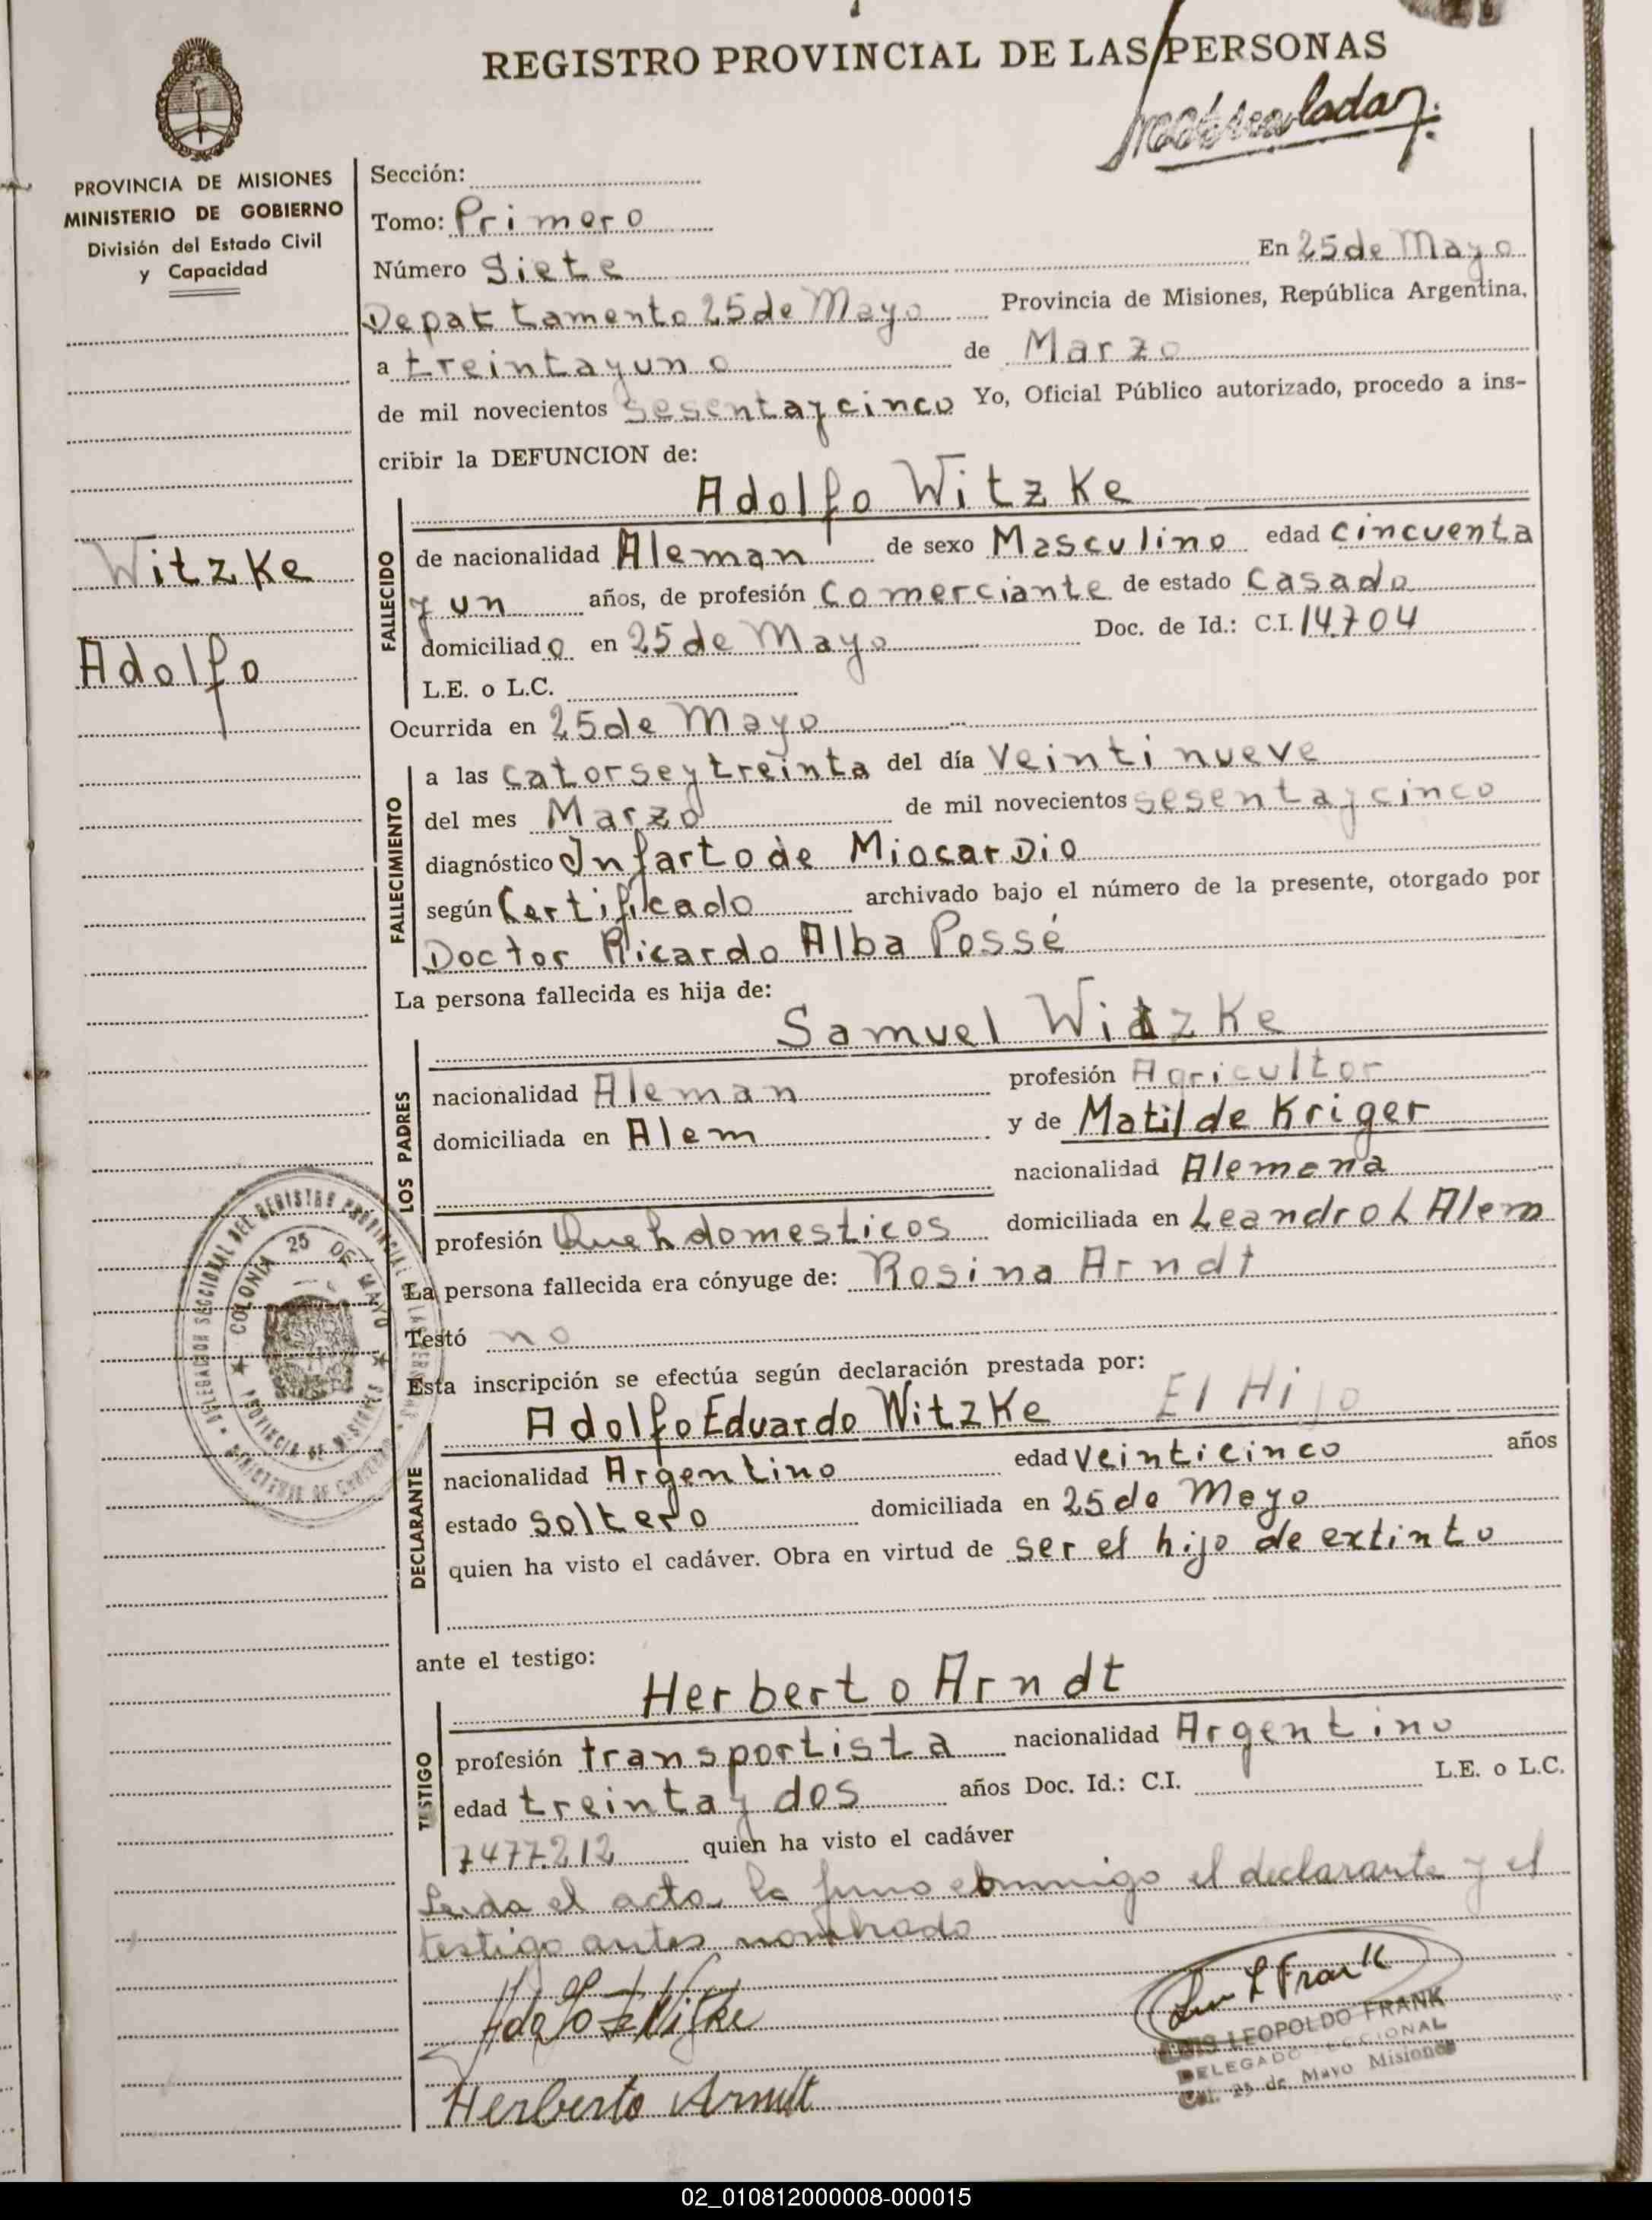 REGISTRO PROVINCIAL DE LAS PERSONAS
PROVINCIA DE MISIONES
MINISTERIO DE GOBIERNO
División del Estado Civil
y Capacidad
Witzke
Adolfo
Sección:
Tomo: Primero
Número Siete En 25 de Mayo
Departamento 25 de Mayo Provincia de Misiones, República Argentina,
a treinta y uno de Marzo
de mil novecientos sesenta y cinco Yo, Oficial Público autorizado, procedo a ins-
cribir la DEFUNCION de:
Adolfo Witzke
FALLECIDO
de nacionalidad Aleman de sexo Masculino edad cincuenta
y un años, de profesión Comerciante de estado Casado
domiciliado en 25 de Mayo Doc. de Id.: C.I. 14.704
L.E. o L.C.
Ocurrida en 25 de Mayo
FALLECIMIENTO
a las catorse y treinta del día Veinti nueve
del mes Marzo de mil novecientos sesenta y cinco
diagnóstico Infarto de Miocardio
según Certificado archivado bajo el número de la presente, otorgado por
Doctor Ricardo Alba Possé
La persona fallecida es hija de:
Samuel Witzke
LOS PADRES
nacionalidad Aleman profesión Agricultor
domiciliada en Alem y de Matilde Kriger
nacionalidad Alemana
profesión Queh domesticos domiciliada en Leandro L Alem
La persona fallecida era cónyuge de: Rosina Arndt
Testó no
Esta inscripción se efectúa según declaración prestada por:
Adolfo Eduardo Witzke El Hijo
DECLARANTE
nacionalidad Argentino edad Veinticinco años
estado Soltero domiciliada en 25 de Mayo
quien ha visto el cadáver. Obra en virtud de ser el hijo de extinto
ante el testigo:
Herberto Arndt
TESTIGO
profesión transportista nacionalidad Argentino
edad treinta y dos años Doc. Id.: C.I. L.E. o L.C.
7477.212 quien ha visto el cadáver
Leida el acta la firmo conmigo el declarante y el
testigo antes nombrado
Adolfo E Witzke
Herberto Arndt
L Frank
LUIS LEOPOLDO FRANK
DELEGADO SECCIONAL
Col. 25 de Mayo Misiones
COLONIA 25 DE MAYO
PROVINCIA DE MISIONES
02_010812000008-000015